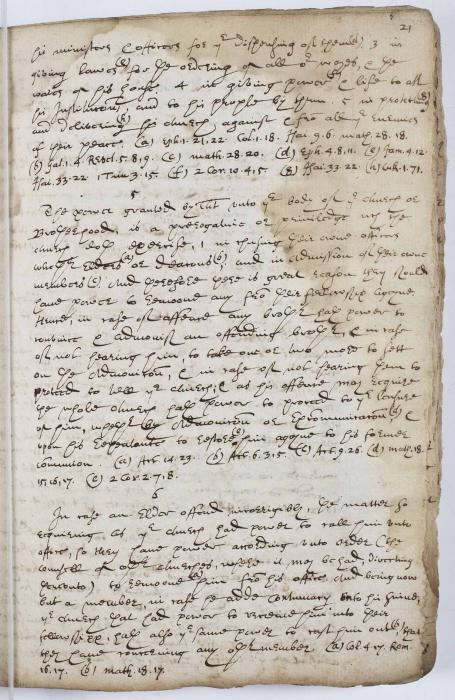 21
his ministers & officers for yͤ dispensing of them(c). 3 in
giving lawes(d) for the ordering of all oͬ wayes, & the
wayes of his house. 4 in giving power(f) & life to all
his Institutions, and to his people by them. 5 in protecting(g)
and delivering(h) his church against & frō all yͤ enemies
of their peace. (a) Eph. 1. 21, 22. Col. 1. 18. Isai. 9. 6. math. 28. 18.
5. 8, 9. (c) math. 28. 20. (d) Eph. 4. 8, 11. (e) Jam. 4. 12.
Isai. 33. 22. 1 Tim. 3. 15. (f) 2 Cor. 10. 4, 5. (g) Isai. 33. 22. (h) Luk. 1. 71.
5
The power granted by Christ unto yͤ body of yͤ church or
Brotherhood, is a prerogative or priviledge wͨh the
church doth exercise, 1 in chusing their owne officers
whether Elders(a) or deacons(b), and in admission of their owne
members(c). And therefore there is great reason they should
have power to remoove any frō their fellowship agayne.
Hence, in case of offence any brother hath power to
convince & admonish an offending brother, & in case
of not hearing him, to take one or two more to sett
on the Admonition, & in case of not hearing them to
proceed to tell yͤ church(d), & as his offence may require
the whole church hath power to proceed to yͤ censure
of him, whether by Admonition or Excommunication, &
upon his repentance to restore(e) him agayne to his former
communion. (a) Act. 14. 23. (b) Act. 6. 3, 5. (c) Act. 9. 26. (d) math. 18.
15, 16, 17. (e) 2 Cor. 2. 7, 8.
6
In case an Elder offend incorrigibly, the matter so
requiring as yͤ church had power to call him unto
office, so they have power according unto order (the
counsell of other churches, where it may be had, directing
thereunto) to remoove him frō his office. And being now
but a member, in case he adde contumacy unto his sinne,
yͤ church that had power to receive him into their
fellowship, hath also yͤ same power to cast him out(b), that
they have concerning any other member (a) Col. 4. 17. Rom.
16. 17. (b) math. 18. 17.